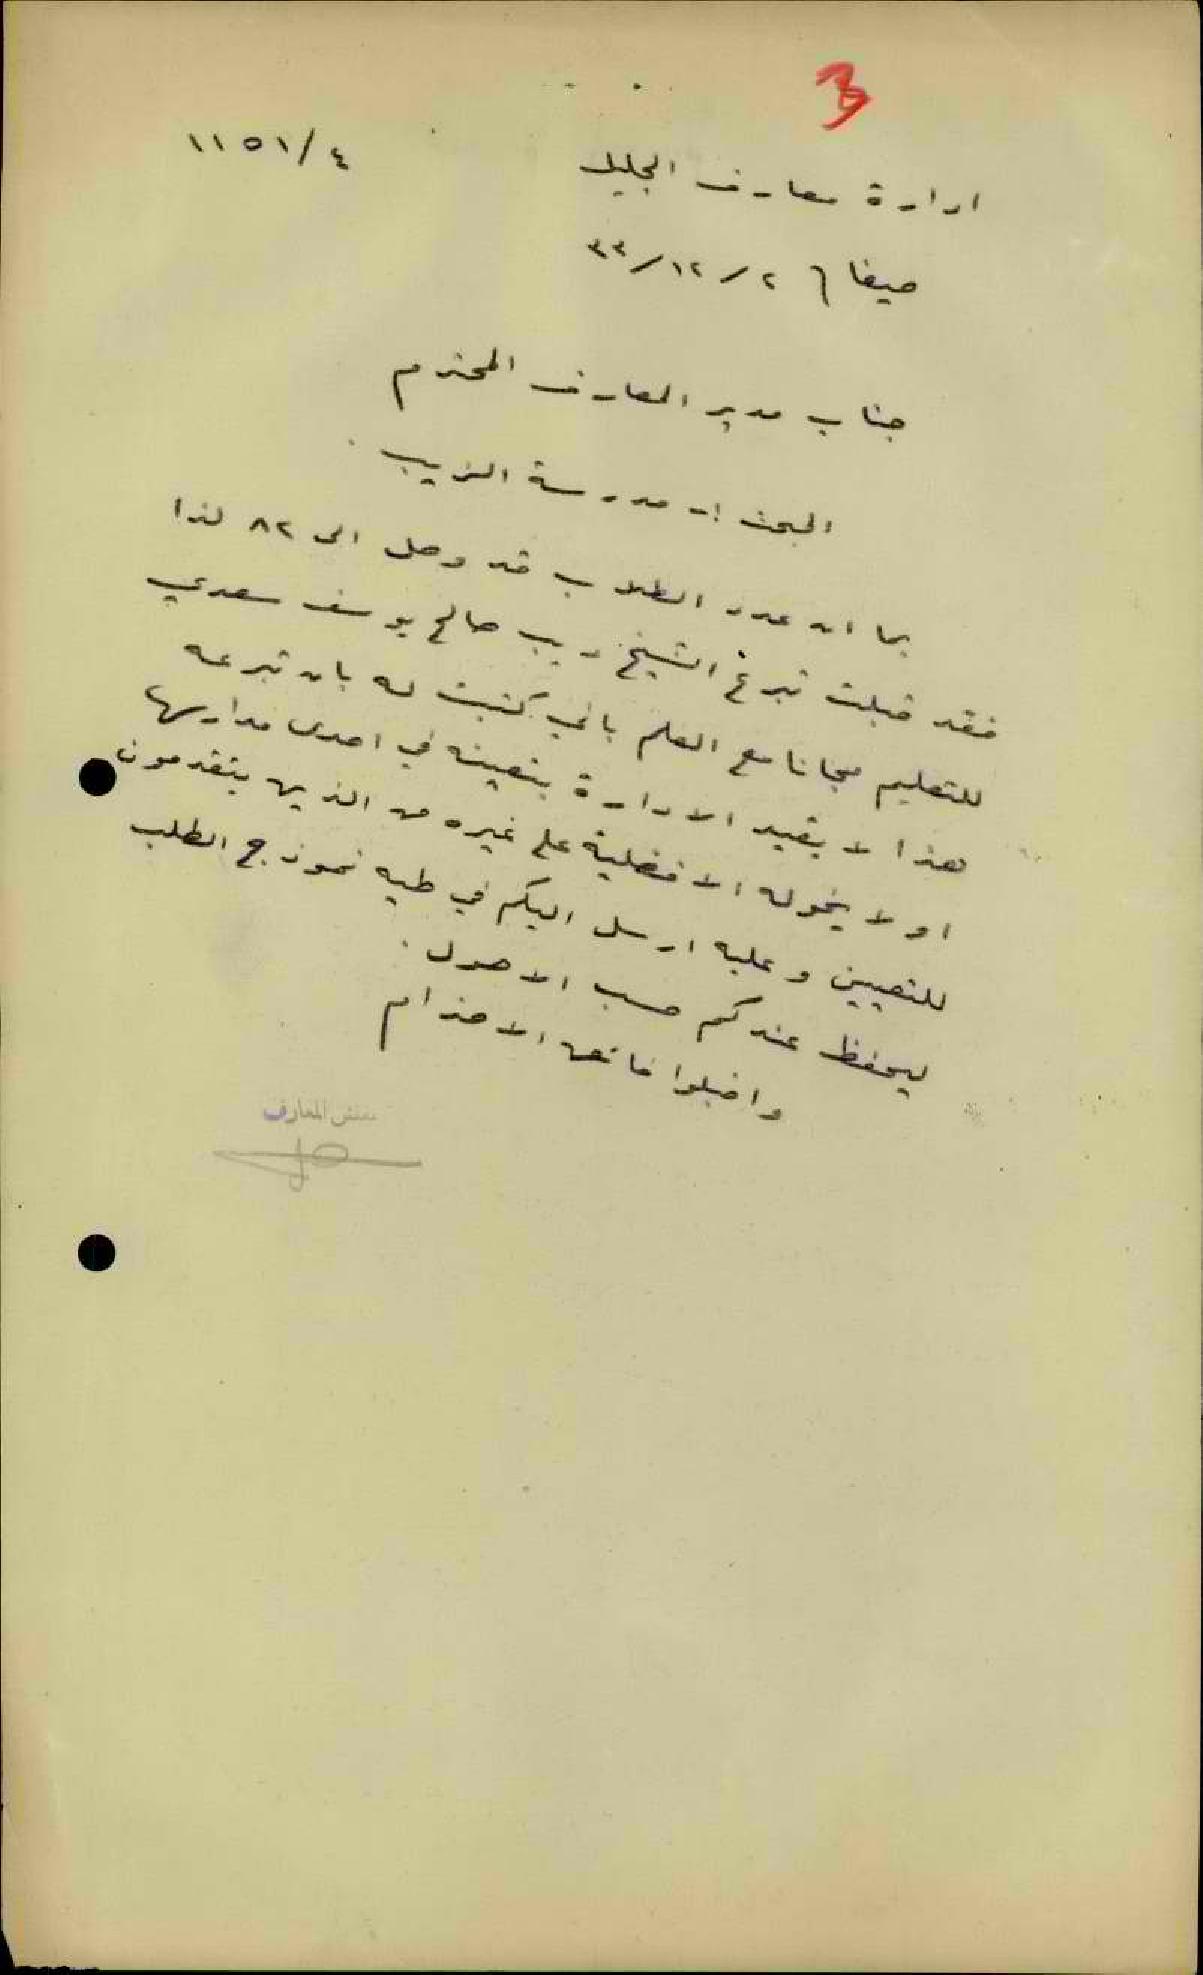 3
١١٥١/٤
ادارة معارف الجليل
حيفا ٢/١٢/٣٣
جناب مدير المعارف المحترم
البحث :- مدرسة الزيب.
بما ان عدد الطلاب قد وصل الى ٨٢ لذا
فقد قبلت تبرع الشيخ ديب صالح يوسف سعدي
للتعليم مجانا مع العلم باني كتبت له بان تبرعه
هذا لا يقيد الادارة بتعيينه في احدى مدارسها
او لا يخوله الافضلية على غيره من الذين يتقدمون
للتعيين وعليه ارسل اليكم في طيه نموذج الطلب
ليحفظ عندكم حسب الاصول.
واقبلوا فائق الاحترام
مفتش المعارف